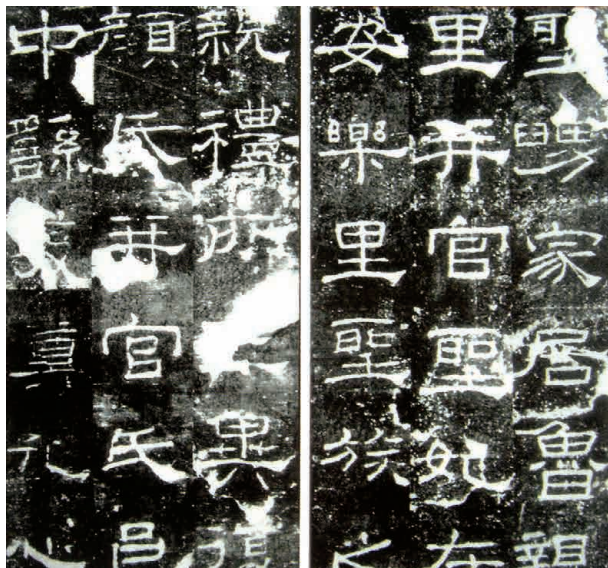 聖舅家居魯親
里并官聖妃在
安樂里聖族之
親禮所異復
顏氏并官氏邑
中繇尊孔心